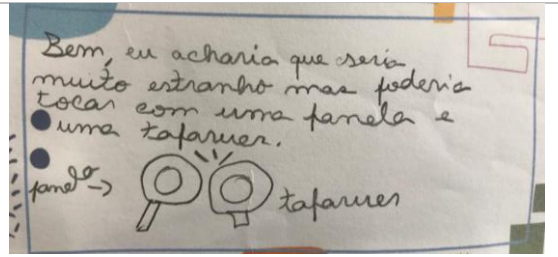 Bem, eu acharia que seria
muito estranho mas poderia
tocar com uma panela e
uma tafaruer.
panela->
tafaruer